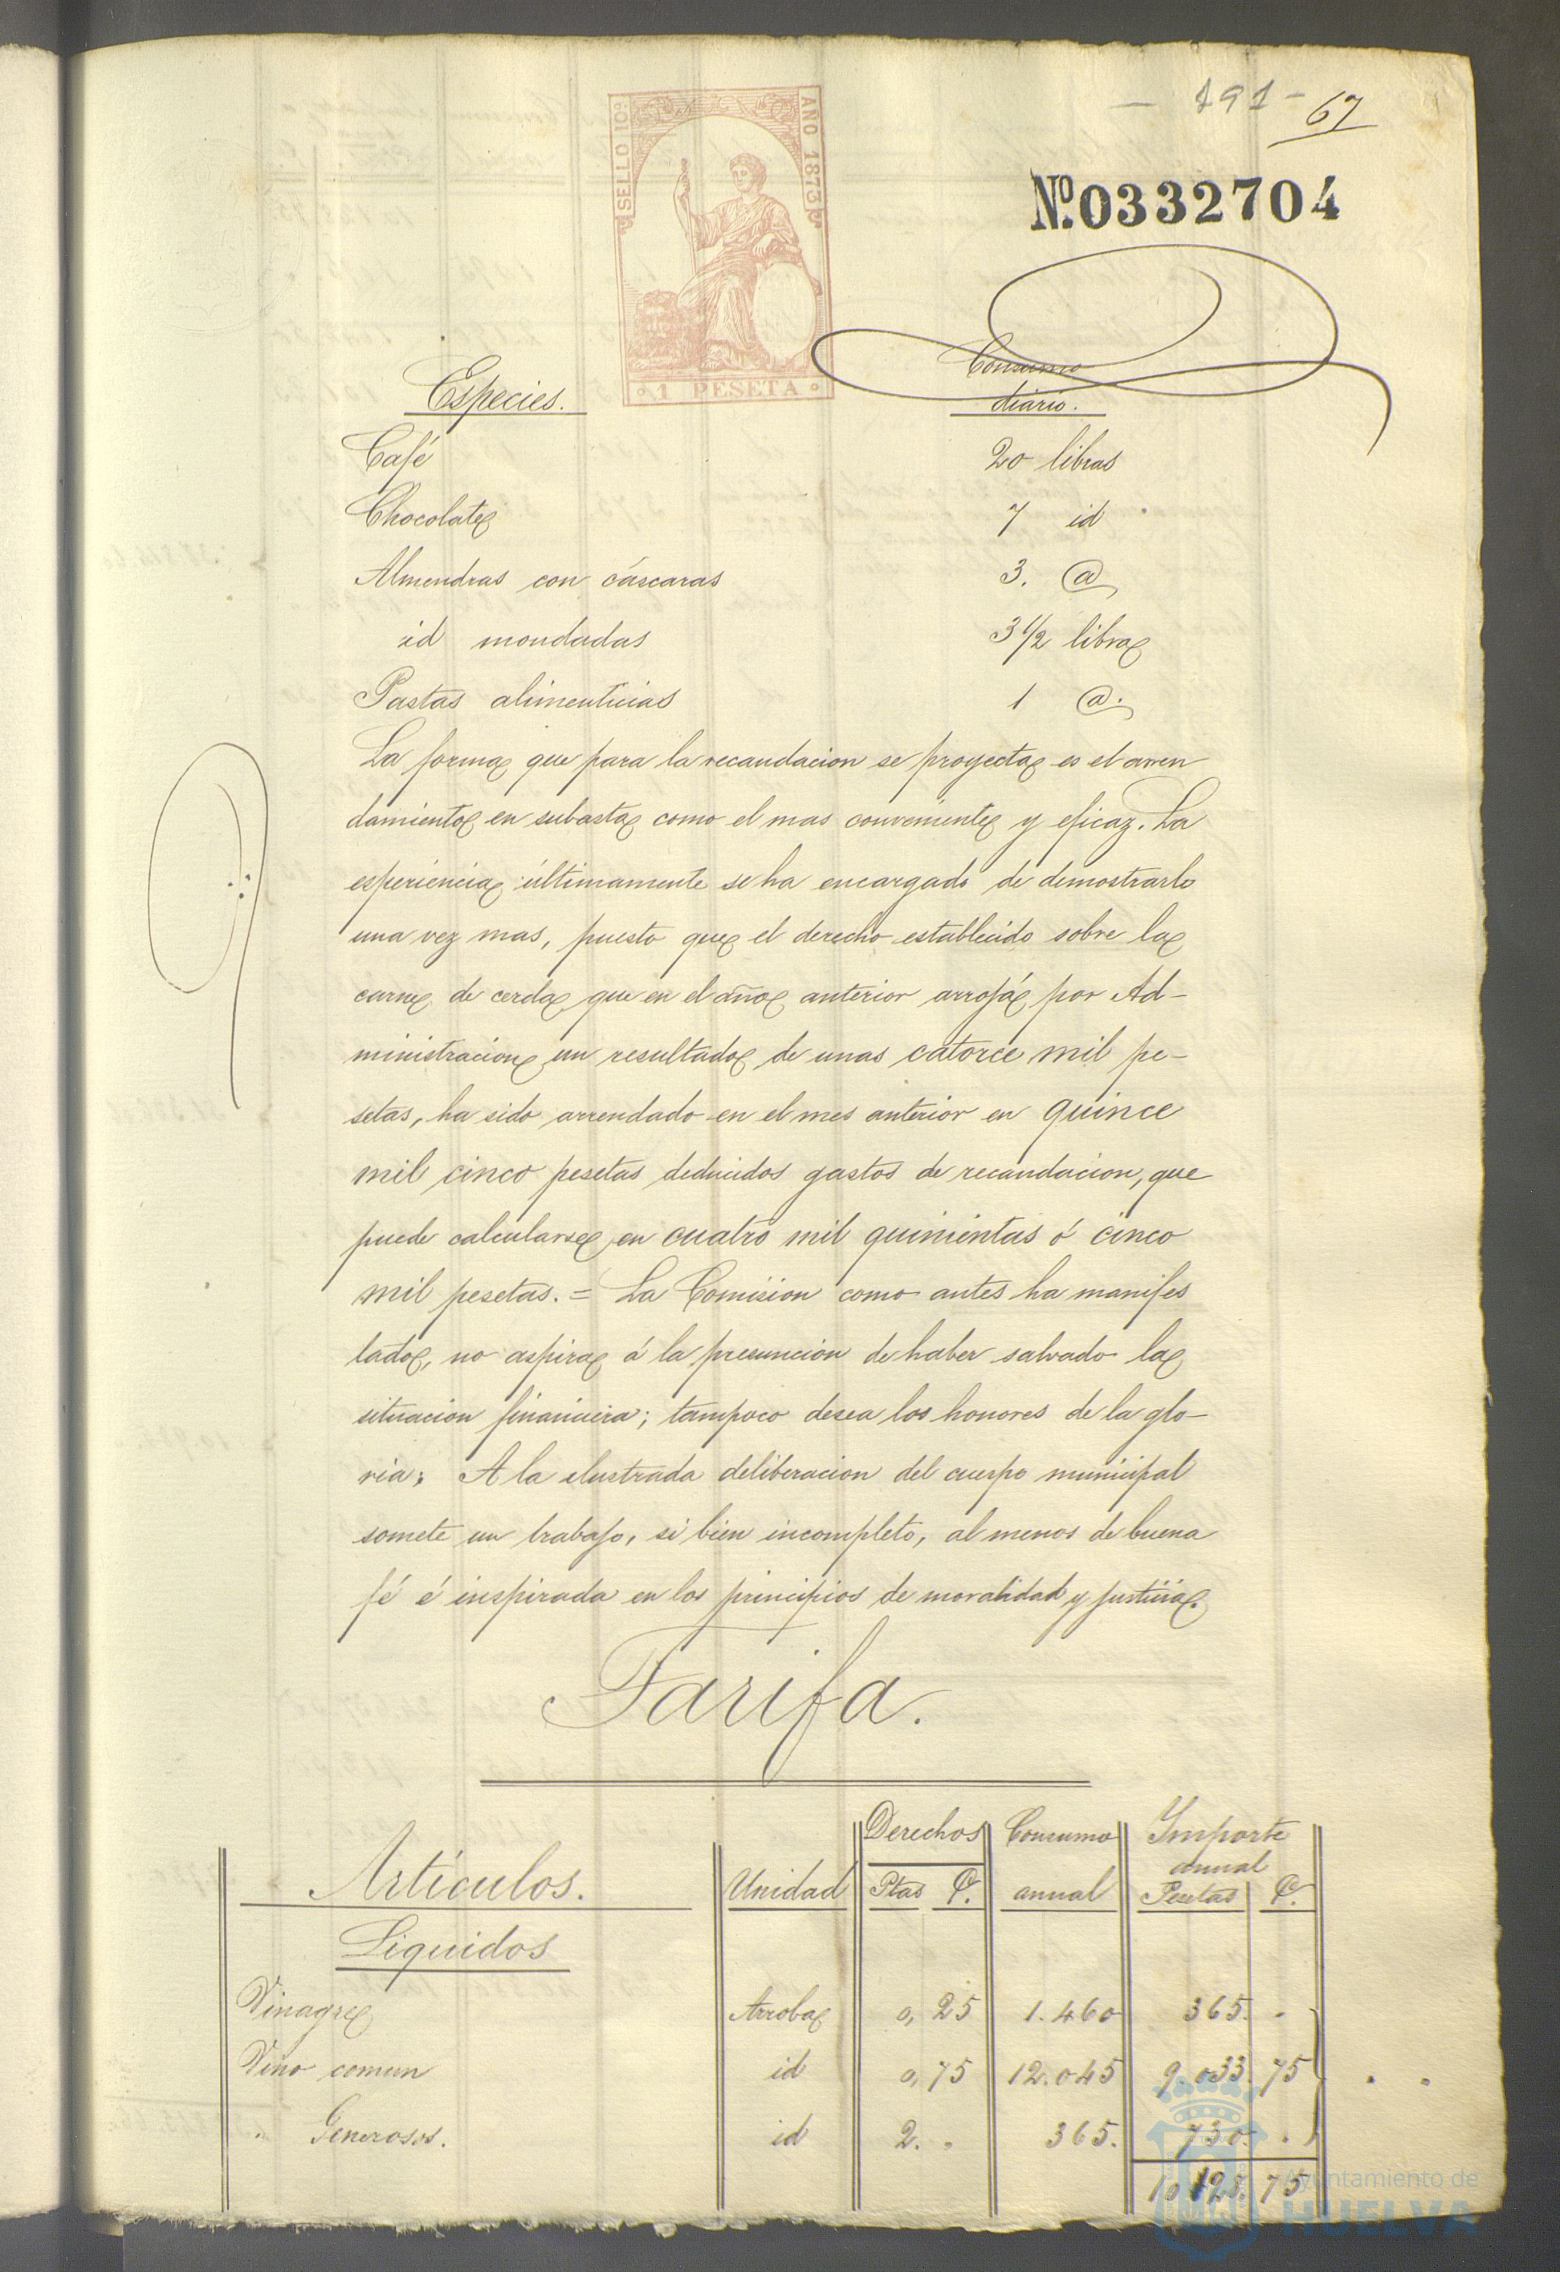 - 191 -
67
SELLO 10º
AÑO 1873
1 PESETA
Nº 0332704
Especies. Consumo
diario.
Café 20 libras
Chocolate 7 id
Almendras con cáscaras 3. @
id mondadas 3 1/2 libras
Pastas alimenticias 1 @.
La forma que para la recaudacion se proyecta es el arren
damiento en subasta como el mas conveniente y eficaz. La
esperiencia últimamente se ha encargado de demostrarlo
una vez mas, puesto que el derecho establecido sobre la
carne de cerda que en el año anterior arrojá por Ad-
ministracion un resultado de unas catorce mil pe-
setas, ha sido arrendado en el mes anterior en quince
mil cinco pesetas deducidos gastos de recaudacion, que
puede calcularse en cuatro mil quinientas ó cinco
mil pesetas. = La Comision como antes ha manifes
tado, no aspira á la presuncion de haber salvado la
situacion financiera; tampoco desea los honores de la glo-
ria; A la ilustrada deliberacion del cuerpo municipal
somete un trabajo, si bien incompleto, al menos de buena
fé é inspirada en los principios de moralidad y justicia.
Tarifa.
Artículos. Unidad Derechos Ptas C. Consumo anual Importe anual Pesetas C.
Liquidos
Vinagre Arroba 0, 25 1.460 365. .
Vino comun id 0, 75 12.045 9.033. 75
" Generosos. id 2. . 365. 730. .
10.128. 75
Ayuntamiento de
HUELVA